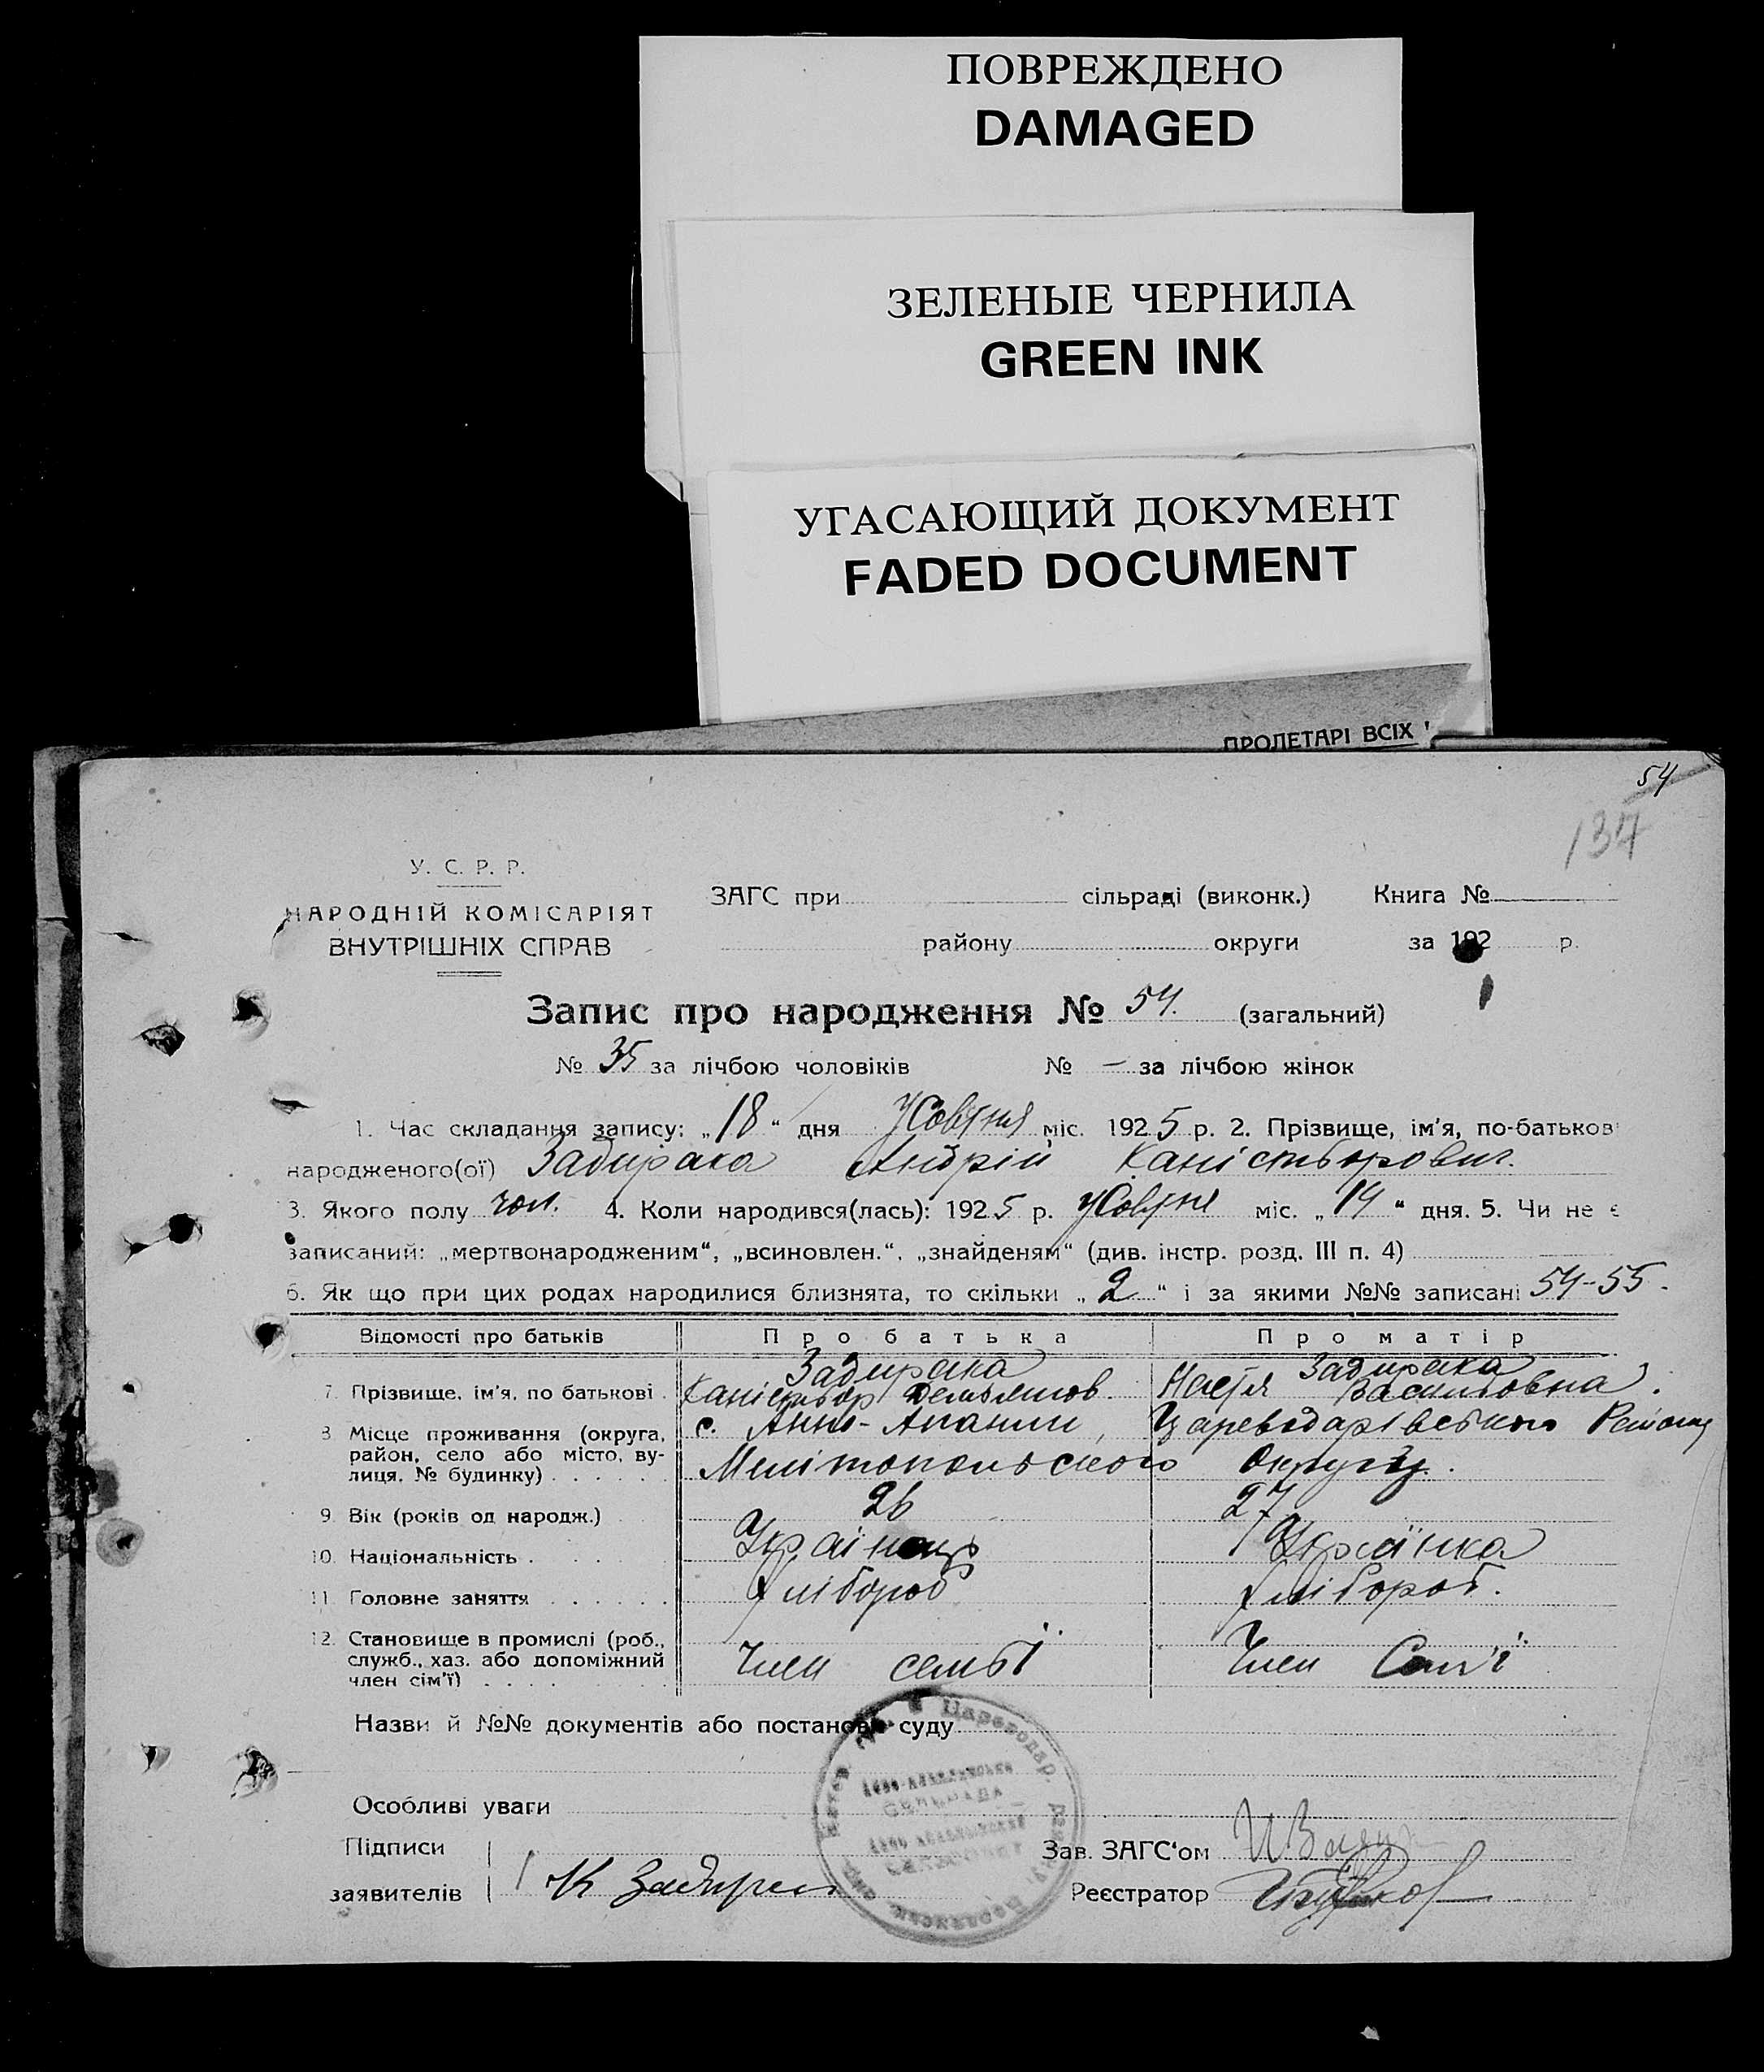 ПОВРЕЖДЕНО
DAMAGED
ЗЕЛЕНЫЕ ЧЕРНИЛА
GREEN INK
УГАСАЮЩИЙ ДОКУМЕНТ
FADED DOCUMENT
ПРОЛЕТАРІ ВСІХ
54
137
У. С. Р. Р.
НАРОДНІЙ КОМІСАРІЯТ
ВНУТРІШНІХ СПРАВ
ЗАГС при сільраді (виконк.) Книга №
району округи за 192 р.
Запис про народження № 54. (загальний)
№ 35 за лічбою чоловіків № — за лічбою жінок
1. Час складання запису: „18“ дня Жовтня міс. 1925 р. 2. Прізвище, ім'я, по-батькові
народженого(ої) Задирака Андрій Каністьорович.
3. Якого полу чол. 4. Коли народився(лась): 1925 р. Жовтня міс. „14“ дня. 5. Чи не є
записаний: „мертвонародженим“, „всиновлен.“, „знайденям“ (див. інстр. розд. III п. 4)
6. Як що при цих родах народилися близнята, то скільки „2“ і за якими №№ записані 54-55.
Відомості про батьків Про батька Про матір
Задирака Задирака
7. Прізвище, ім'я, по батькові Каністьор Настя Васильовна.
8 Місце проживання (округа, с. Цареводарівського Району
район, село або місто, ву-
лиця, № будинку) Мелітопольского Округу.
9. Вік (років од народж.) 26 27
10. Національність Українець Українка
11. Головне заняття Хлібороб Хлібороб.
12. Становище в промислі (роб.,
служб., хаз. або допоміжний Член семьї Член Сем'ї
член сім'ї)
Назви й №№ документів або постанови суду
Цареводар.
Особливі уваги
Підписи Зав. ЗАГС'ом
заявителів К Задирака Реєстратор